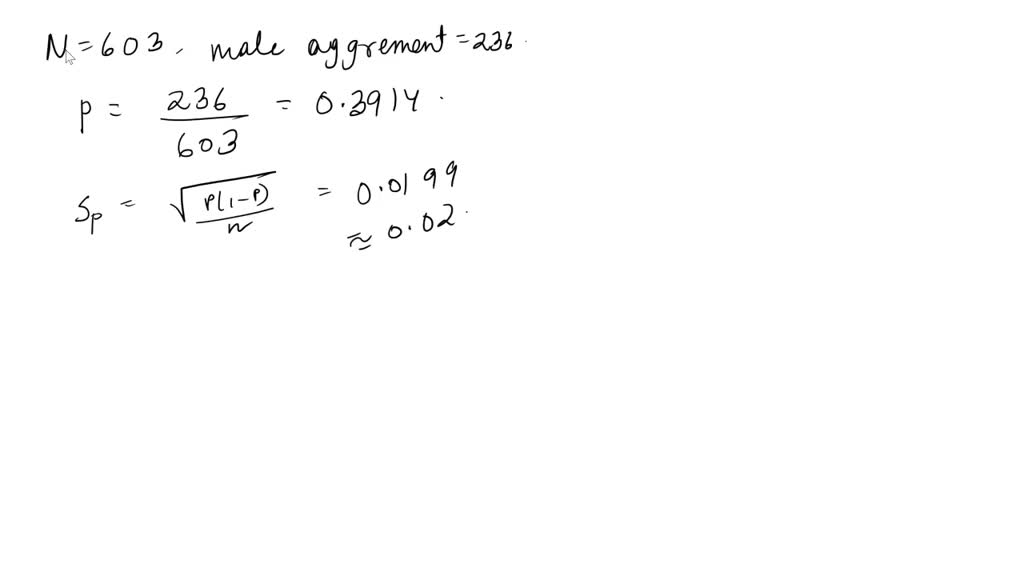 N = 603, male aggrement = 236.
p = 236/603 = 0.3914.
Sp = √P(1-P)/n = 0.0199
≈ 0.02.